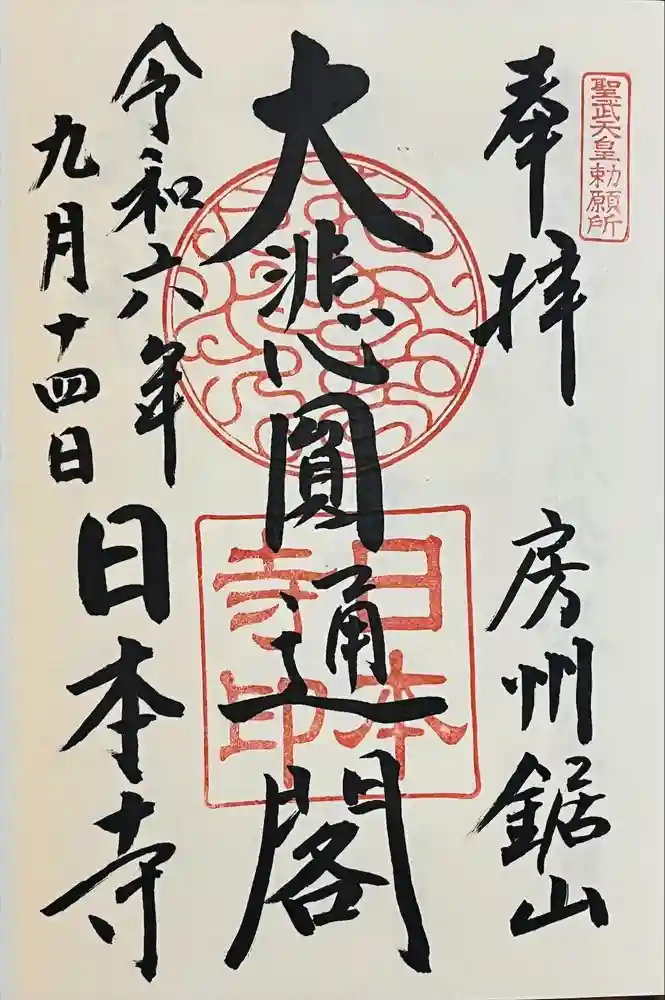 聖武天皇勅願所
奉拝
房州鋸山
大悲心圓通閣
日本
寺印
令和六年
九月十四日
日本寺